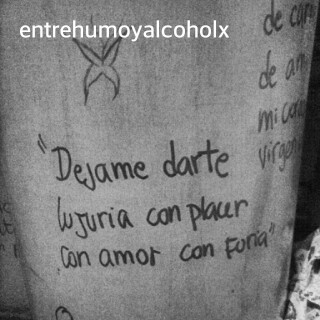 entrehumoyalcoholx
de
de
"Dejame darte
lujuria con placer
con amor con Furia"